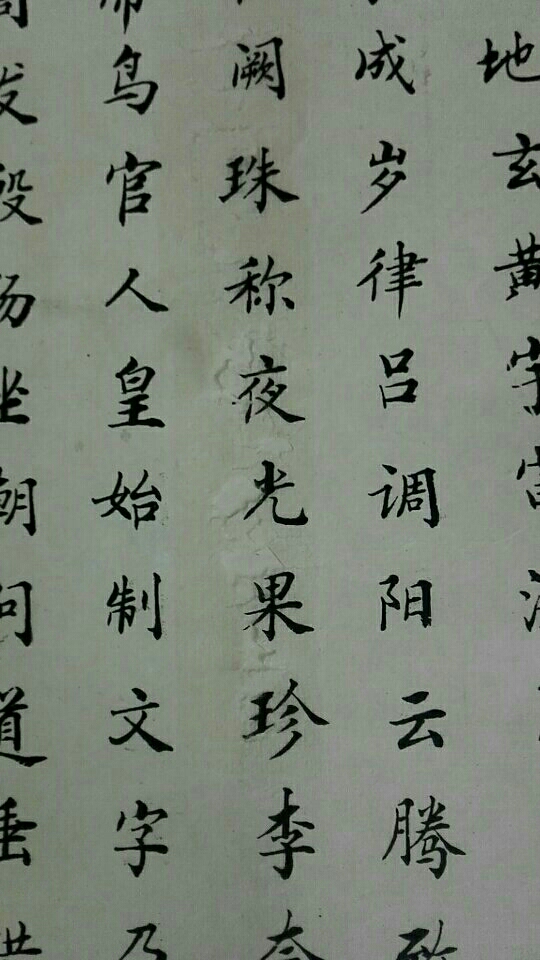 地玄黄宇宙洪
成岁律吕调阳云腾致
阙珠称夜光果珍李柰
帝鸟官人皇始制文字乃
周发殷汤坐朝问道垂拱